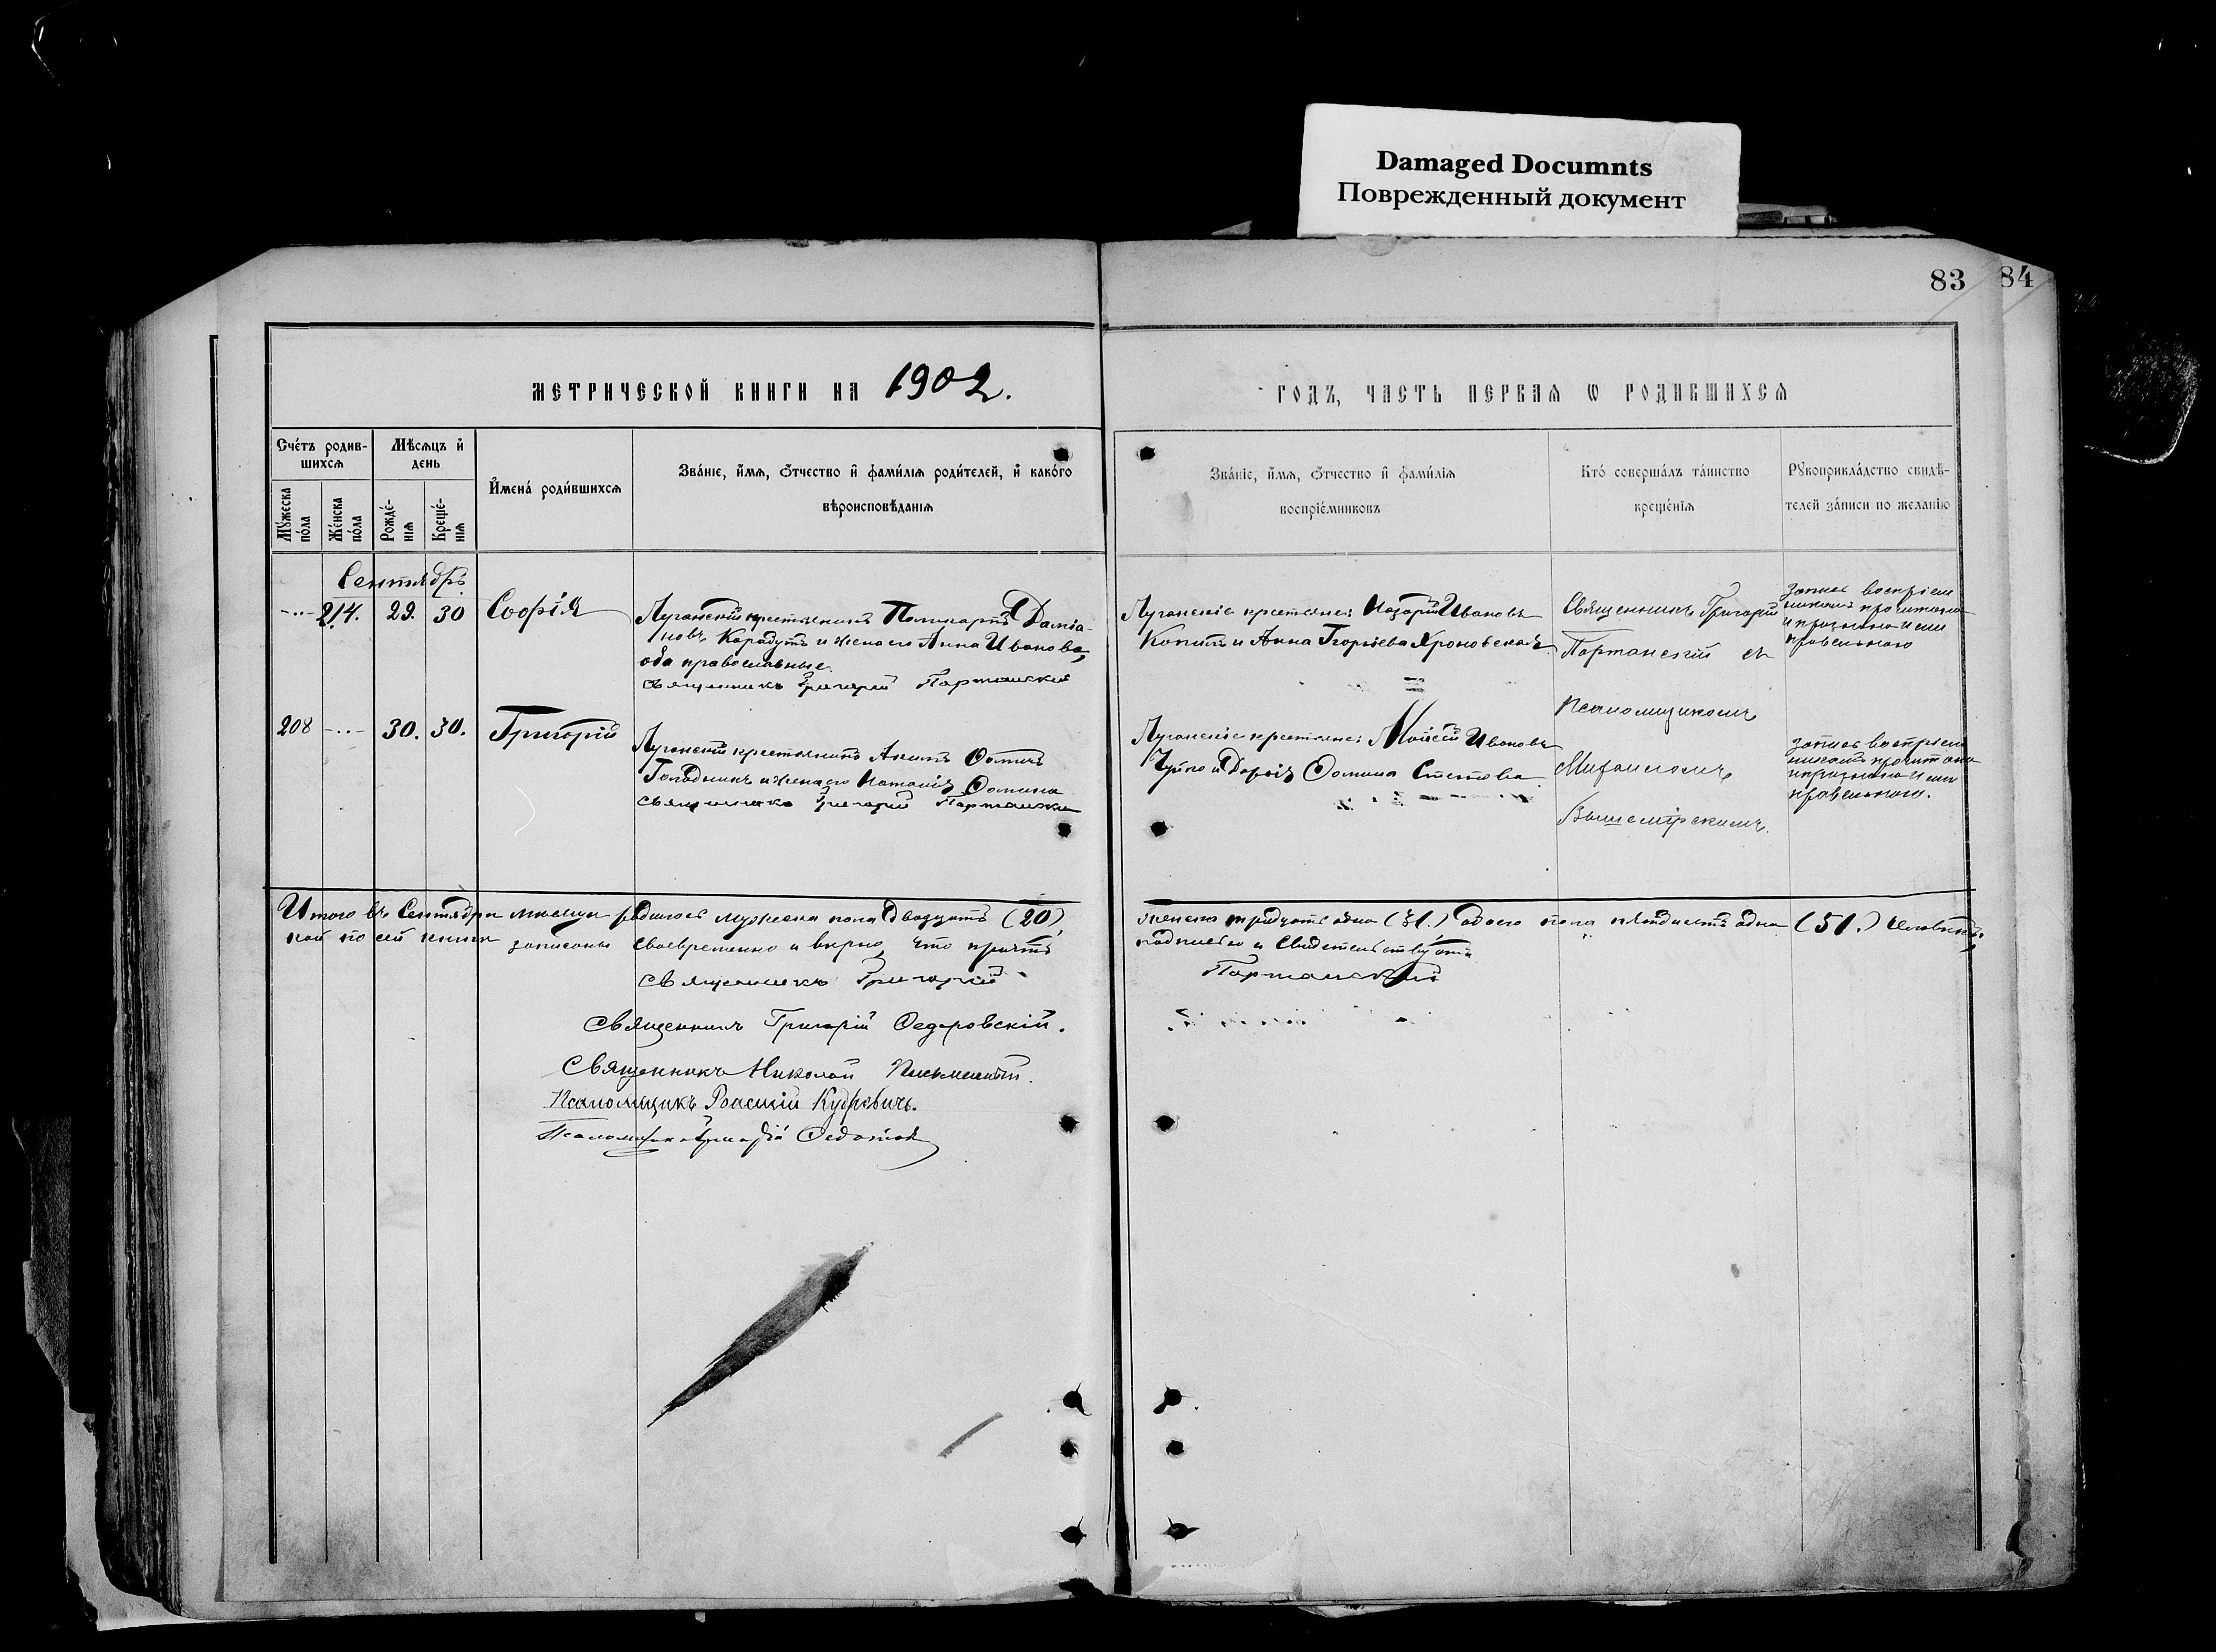 Damaged Documnts
Поврежденный документ
83 84
МЕТРИЧЕСКОЙ КНИГИ НА 1902.
ГОДЪ, ЧАСТЬ ПЕРВАЯ Ѡ РОДИВШИХСЯ
Сче́тъ родив-
шихсѧ
Мѣсѧцъ и҆
день
Мꙋжеска
по́ла
Же́нска
по́ла
Рожде́-
нїѧ
Креще́-
нїѧ
И҆мена̀ роди́вшихсѧ
Зва́нїе, и҆́мѧ, ѻ҆́тчество и҆ фами́лїѧ роди́телей, и҆ како́го
вѣроисповѣ́данїѧ
Зва́нїе, и҆́мѧ, ѻ҆́тчество и҆ фами́лїѧ
воспрїе́мниковъ
Кто̀ соверша́лъ та́инство
креще́нїѧ
Рꙋкоприкла́дство свидѣ́-
телей за́писи по жела́нїю
Сентябрь
-··- 214. 29. 30 Софія
Луганскій крестьянинъ Поликарпъ Даміа-
новъ Карадутъ и жена его Анна Иванова,
оба православные.
Священникъ Григорій Партанскій
Луганскіе крестьяне: Назарій Ивановъ
Копитъ и Анна Георгіева Яроновская
Священникъ Григорій
Партанскій съ
Псаломщикомъ
Михаиломъ
Вышемірскимъ.
запись воспріем
никамъ прочитана
и признана ими
правильною
208 -··- 30. 30. Григорій
Луганскій крестьянинъ Акимъ Ѳомичъ
Голодникъ и жена его Наталія Ѳомина
Священникъ Григорій Партанскій
Луганскіе крестьяне: Моисей Ивановъ
и Дарія Ѳомина
запись воспріем
никамъ прочитана
и признана ими
правильною.
Итого въ Сентябрѣ мѣсяцѣ родилось мужеска пола двадцать (20)
женска тридцать одна (31.) обоего пола пятьдесятъ одна (51.) человѣкъ,
кои по сей книгѣ записаны своевременно и вѣрно, что причтъ
подписью и свидетельствуютъ
Священникъ Григорій
Партанскій
Священникъ Григорій Ѳедоровскій.
Священникъ Николай Письменный.
Псаломщикъ Кудревичъ.
Псаломщикъ